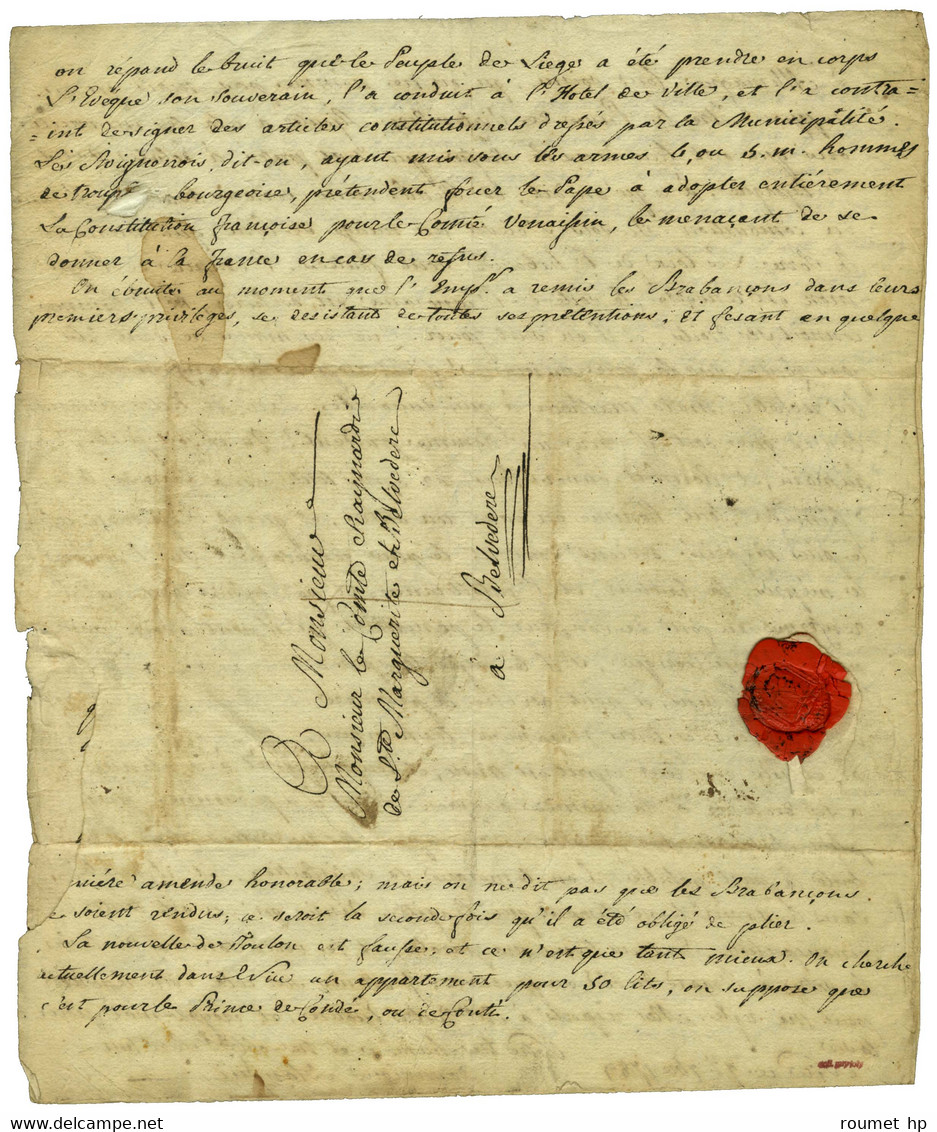 on répand le bruit que le Peuple de Liege a été prendre en corps
L'Evéque son souverain, l'a conduit à l'Hotel de Ville, et l'a contra=
=int de signer des articles constitutionnels dressés par la Municipalité.
Les Avignonois, dit-on, ayant mis sous les armes 4 ou 5.m. hommes
de troupe bourgeoise, prétendent forcer le Pape à adopter entiérement
La Constitution françoise pour le Comté Venaissin, le menaçant de se
donner à la france en cas de refus.
On ébruite au moment que l'Empr. a remis les Brabançons dans leurs
premiers privileges, se desistant de toutes ses prétentions, et fesant en quelque
A Monsieur
Monsieur le Comte Raynardi
de Ste Marguerite et Belvedere
à Belvedere
niére amende honorable; mais on ne dit pas que les Brabançons
se soient rendus; ce seroit la seconde fois qu'il a été obligé de plier.
La nouvelle de Toulon est fausse, et ce n'est que tant mieux. On cherche
actuellement dans Nice un appartement pour 50 lits, on suppose que
c'est pour le Prince de Condé, ou de Conti.
roumet hp